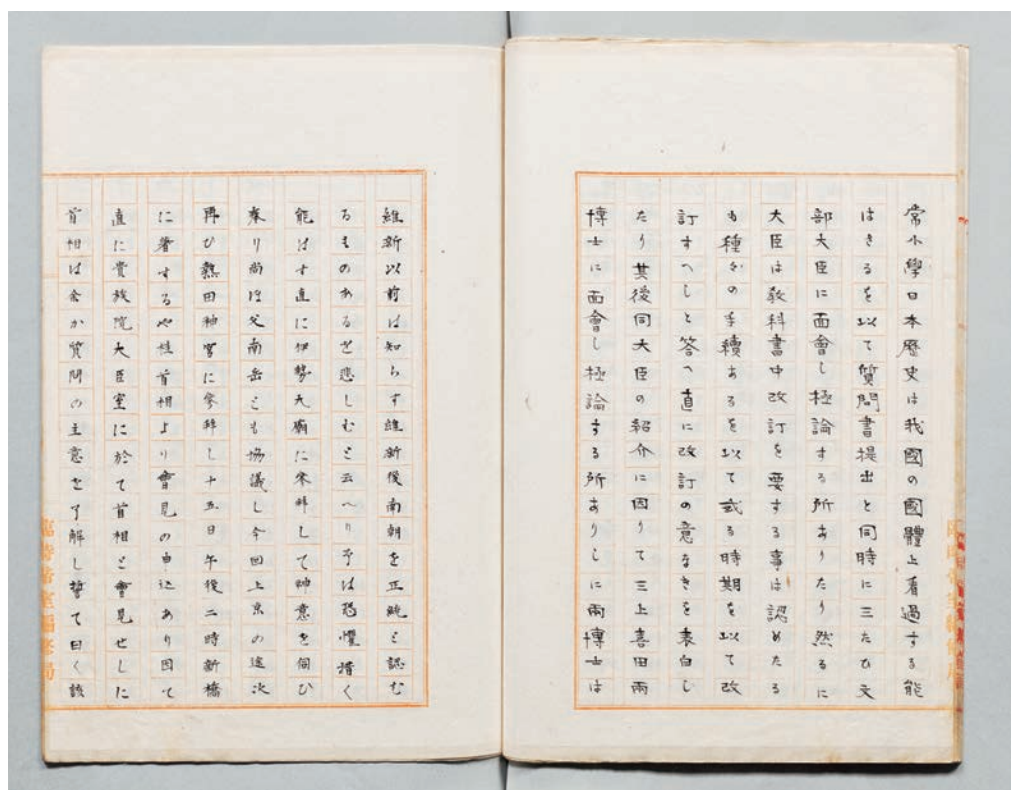 常小學日本歷史は我國の國體上看過する能
はさるを以て質問書提出と同時に三たひ文
部大臣に面會し極論する所ありたり然るに
大臣は敎科書中改訂を要する事は認めたる
も種々の手續あるを以て或る時期を以て改
訂すへしと答へ直に改訂の意なきを表白し
たり其後同大臣の紹介に因りて三上喜田兩
博士に面會し極論する所ありしに兩博士は
維新以前は知らす維新後南朝を正統と認む
るものあるを悲しむと云へり予は恐懼措く
能はす直に伊勢大廟に參拜して神意を伺ひ
奉り尚ほ父南岳とも協議し今回上京の途次
再ひ熱田神宮に參拜し十五日午後二時新橋
に着するや桂首相より會見の申込あり因て
直に貴族院大臣室に於て首相と會見せしに
首相は余か質問の主意を了解し誓て曰く該
臨時帝室編修局